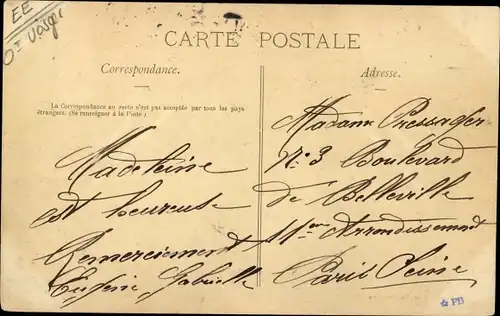 EE
Dt Vosges
CARTE POSTALE
Correspondance.
Adresse.
La Correspondance au recto n'est pas acceptée par tous les pays
étrangers. (Se renseigner à la Poste.)
Madeleine
est heureuse
Remerciement
Eugénie Gabrielle
Madame Pressager
No 3 Boulevard
de Belleville
11em Arrondissement
Paris Seine
PB